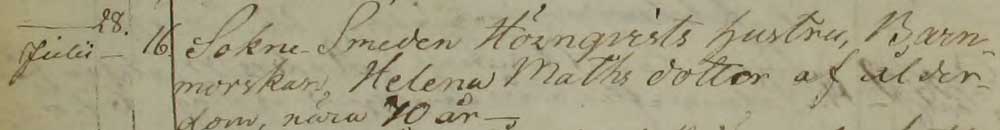 28.
Julii — 16. Sokne-Smeden Hörnqvists hustru, Barn-
morskan, Helena Maths dotter af ålder-
dom, nära 70 år —